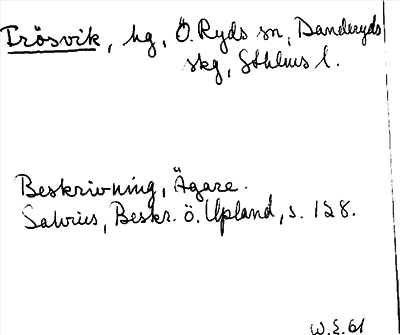 Frösvik, hg, Ö. Ryds sn, Danderyds
skg, Sthlms l.
Beskrivning, Ägare.
Salvius, Beskr. ö. Upland, s. 128.
W.E. 61